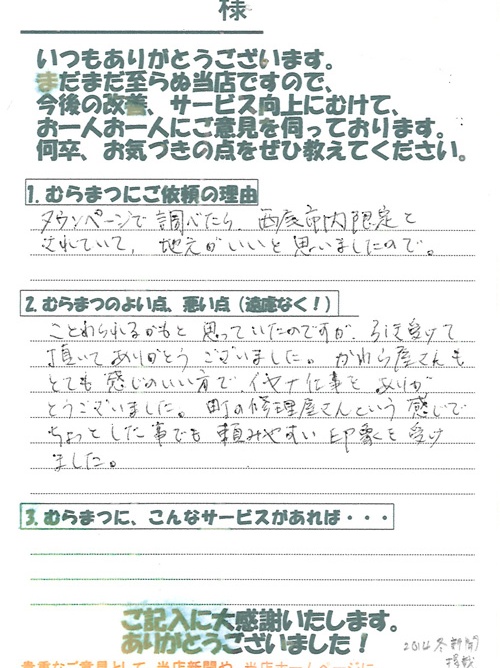 様
いつもありがとうございます。
まだまだ至らぬ当店ですので、
今後の改善、サービス向上にむけて、
お一人お一人にご意見を伺っております。
何卒、お気づきの点をぜひ教えてください。
1. むらまつにご依頼の理由
タウンページで調べたら、西尾市内限定と
されていて、地元がいいと思いましたので。
2. むらまつのよい点、悪い点（遠慮なく！）
ことわられるかもと思っていたのですが、引き受けて
頂いてありがとうございました。かわら屋さんも
とても感じのいい方でイヤナ仕事をありが
とうございました。町の修理屋さんという感じで
ちょっとした事でも頼みやすい印象を受け
ました。
3. むらまつに、こんなサービスがあれば・・・
ご記入に大感謝いたします。
ありがとうございました！
2014 冬新聞
掲載
貴重なご意見として、当店新聞や、当店ホームページに